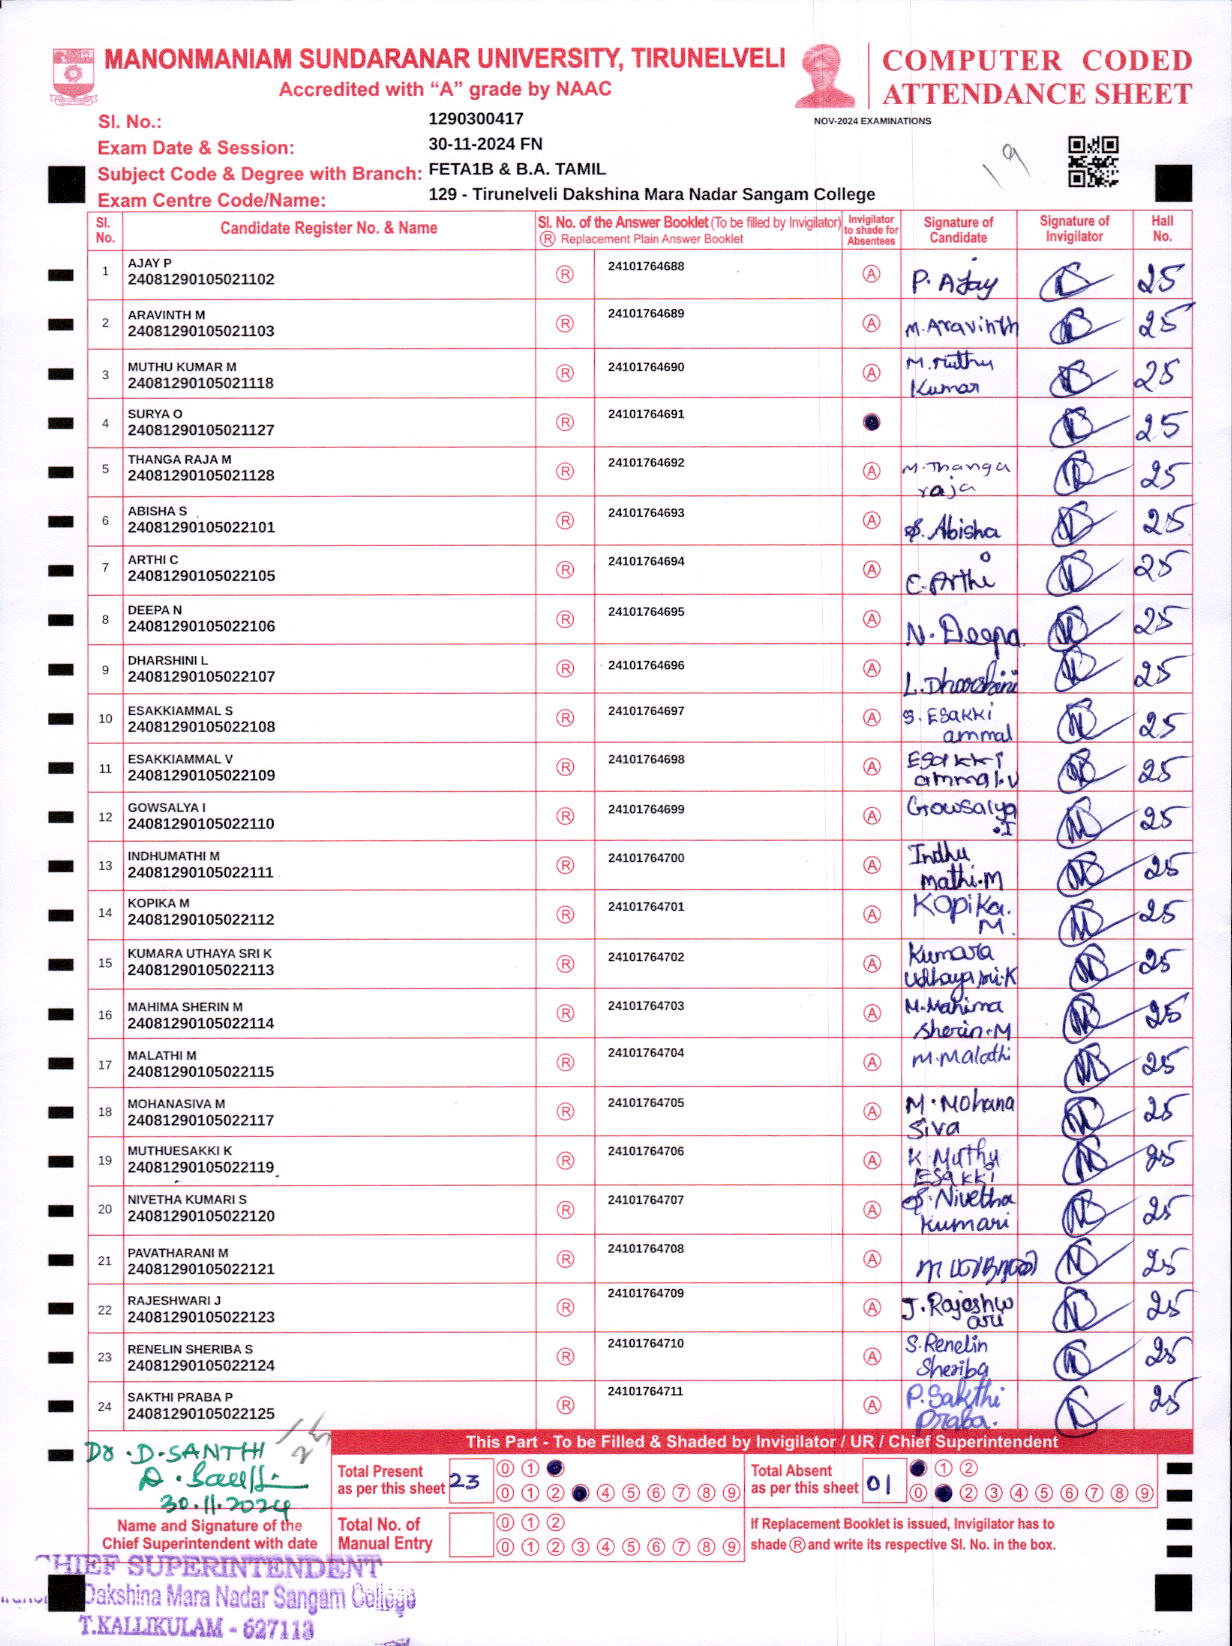 MANONMANIAM SUNDARANAR UNIVERSITY, TIRUNELVELI
Accredited with “A” grade by NAAC
COMPUTER CODED
ATTENDANCE SHEET
NOV-2024 EXAMINATIONS
19
Sl. No.: 1290300417
Exam Date & Session: 30-11-2024 FN
Subject Code & Degree with Branch: FETA1B & B.A. TAMIL
Exam Centre Code/Name: 129 - Tirunelveli Dakshina Mara Nadar Sangam College
Sl. No. Candidate Register No. & Name Sl. No. of the Answer Booklet (To be filled by Invigilator) Ⓡ Replacement Plain Answer Booklet Invigilator to shade for Absentees Signature of Candidate Signature of Invigilator Hall No.
1 AJAY P 24081290105021102 Ⓡ 24101764688 Ⓐ P. Ajay 25
2 ARAVINTH M 24081290105021103 Ⓡ 24101764689 Ⓐ M.Aravinth 25
3 MUTHU KUMAR M 24081290105021118 Ⓡ 24101764690 Ⓐ M.Muthu Kumar 25
4 SURYA O 24081290105021127 Ⓡ 24101764691 25
5 THANGA RAJA M 24081290105021128 Ⓡ 24101764692 Ⓐ M.Thanga raja 25
6 ABISHA S 24081290105022101 Ⓡ 24101764693 Ⓐ S.Abisha 25
7 ARTHI C 24081290105022105 Ⓡ 24101764694 Ⓐ C.Arthi 25
8 DEEPA N 24081290105022106 Ⓡ 24101764695 Ⓐ N.Deepa 25
9 DHARSHINI L 24081290105022107 Ⓡ 24101764696 Ⓐ L.Dharshini 25
10 ESAKKIAMMAL S 24081290105022108 Ⓡ 24101764697 Ⓐ S.Esakki ammal 25
11 ESAKKIAMMAL V 24081290105022109 Ⓡ 24101764698 Ⓐ Esakki ammal.V 25
12 GOWSALYA I 24081290105022110 Ⓡ 24101764699 Ⓐ Gowsalya .I 25
13 INDHUMATHI M 24081290105022111 Ⓡ 24101764700 Ⓐ Indhu mathi.M 25
14 KOPIKA M 24081290105022112 Ⓡ 24101764701 Ⓐ Kopika. M. 25
15 KUMARA UTHAYA SRI K 24081290105022113 Ⓡ 24101764702 Ⓐ Kumara Udhaya sri.K 25
16 MAHIMA SHERIN M 24081290105022114 Ⓡ 24101764703 Ⓐ M.Mahima Sherin.M 25
17 MALATHI M 24081290105022115 Ⓡ 24101764704 Ⓐ M.Malathi 25
18 MOHANASIVA M 24081290105022117 Ⓡ 24101764705 Ⓐ M.Mohana Siva 25
19 MUTHUESAKKI K 24081290105022119 Ⓡ 24101764706 Ⓐ K.Muthu Esakki 25
20 NIVETHA KUMARI S 24081290105022120 Ⓡ 24101764707 Ⓐ S.Nivetha Kumari 25
21 PAVATHARANI M 24081290105022121 Ⓡ 24101764708 Ⓐ 25
22 RAJESHWARI J 24081290105022123 Ⓡ 24101764709 Ⓐ J.Rajeshw ari 25
23 RENELIN SHERIBA S 24081290105022124 Ⓡ 24101764710 Ⓐ S.Renelin Sheriba 25
24 SAKTHI PRABA P 24081290105022125 Ⓡ 24101764711 Ⓐ P.Sakthi Praba. 25
This Part - To be Filled & Shaded by Invigilator / UR / Chief Superintendent
Dr.D.SANTHI
30.11.2024
Name and Signature of the
Chief Superintendent with date
Total Present as per this sheet 23
0 1
0 1 2 4 5 6 7 8 9
Total Absent as per this sheet 01
1 2
0 2 3 4 5 6 7 8 9
Total No. of Manual Entry
0 1 2
0 1 2 3 4 5 6 7 8 9
If Replacement Booklet is issued, Invigilator has to
shade Ⓡ and write its respective Sl. No. in the box.
CHIEF SUPERINTENDENT
Dakshina Mara Nadar Sangam College
T.KALLIKULAM - 627113